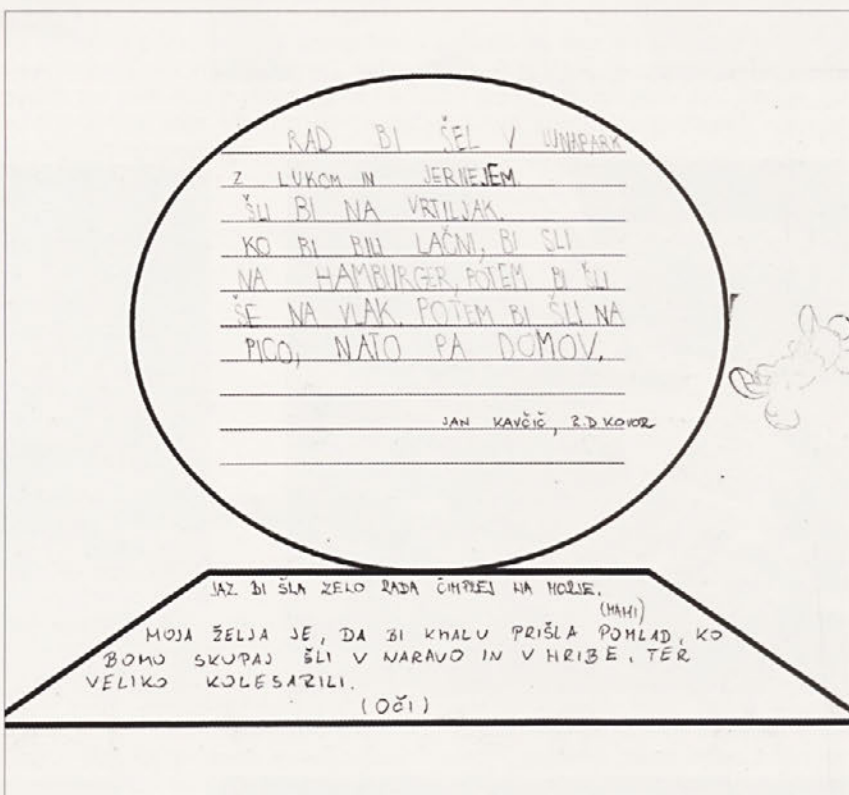 RAD BI ŠEL V LUNAPARK
Z LUKOM IN JERNEJEM.
ŠLI BI NA VRTILJAK.
KO BI BILI LAČNI, BI ŠLI
NA HAMBURGER, POTEM BI ŠLI
ŠE NA VLAK. POTEM BI ŠLI NA
PICO, NATO PA DOMOV.
JAN KAVČIČ, 2.D KOVOR
JAZ BI ŠLA ZELO RADA ČIMPREJ NA MORJE.
(MAMI)
MOJA ŽELJA JE, DA BI KMALU PRIŠLA POMLAD, KO
BOMO SKUPAJ ŠLI V NARAVO IN V HRIBE, TER
VELIKO KOLESARILI.
(OČI)